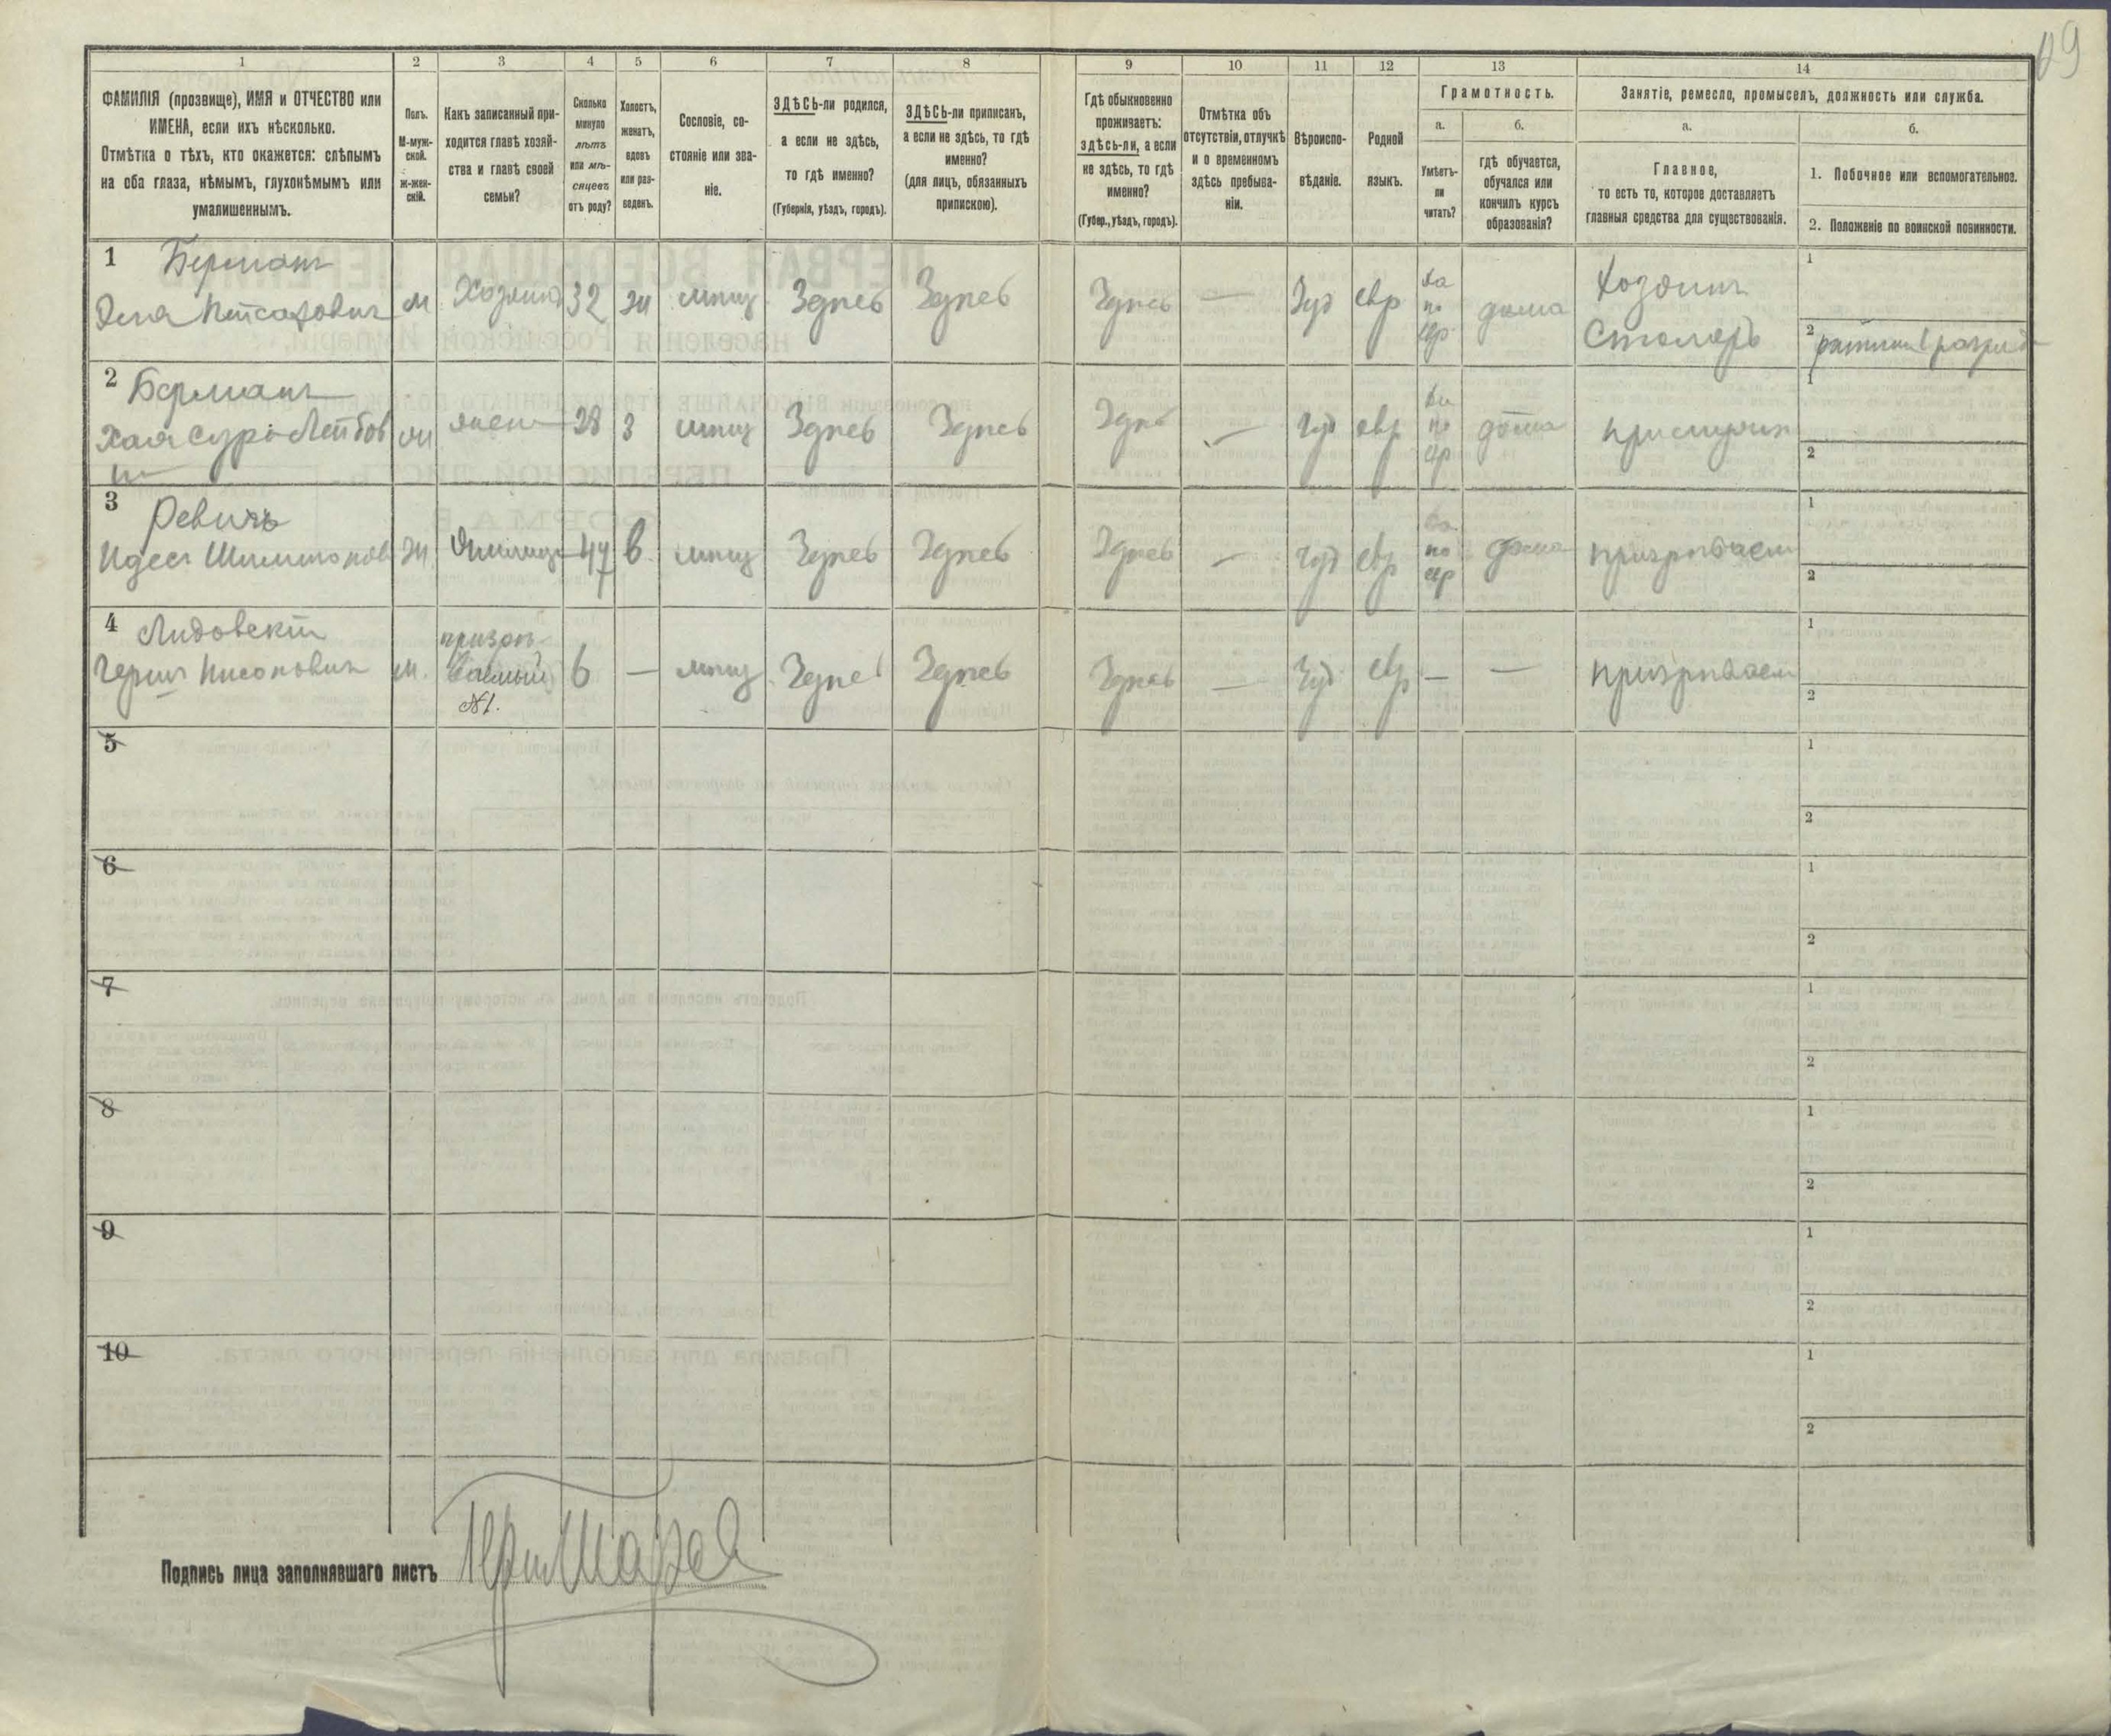 09
1 2 3 4 5 6 7 8 9 10 11 12 13 14
ФАМИЛІЯ (прозвище), ИМЯ и ОТЧЕСТВО или
ИМЕНА, если ихъ нѣсколько.
Отмѣтка о тѣхъ, кто окажется: слѣпымъ
на оба глаза, нѣмымъ, глухонѣмымъ или
умалишеннымъ.
Полъ.
М-муж-
ской.
Ж-жен-
скій.
Какъ записанный при-
ходится главѣ хозяй-
ства и главѣ своей
семьи?
Сколько
минуло
лѣтъ
или мѣ-
сяцевъ
отъ роду?
Холостъ,
женатъ,
вдовъ
или раз-
веденъ.
Сословіе, со-
стояніе или зва-
ніе.
ЗДѢСЬ-ли родился,
а если не здѣсь,
то гдѣ именно?
(Губернія, уѣздъ, городъ).
ЗДѢСЬ-ли приписанъ,
а если не здѣсь, то гдѣ
именно?
(для лицъ, обязанныхъ
припискою).
Гдѣ обыкновенно
проживаетъ:
здѣсь-ли, а если
не здѣсь, то гдѣ
именно?
(Губер., уѣздъ, городъ).
Отмѣтка объ
отсутствіи, отлучкѣ
и о временномъ
здѣсь пребыва-
ніи.
Вѣроиспо-
вѣданіе.
Родной
языкъ.
Грамотность.
а.
Умѣетъ-
ли
читать?
б.
гдѣ обучается,
обучался или
кончилъ курсъ
образованія?
Занятіе, ремесло, промыселъ, должность или служба.
а.
Главное,
то есть то, которое доставляетъ
главныя средства для существованія.
б.
1. Побочное или вспомогательное.
2. Положеніе по воинской повинности.
1 Берманъ
м Хозяинъ 32 ж мѣщ Здѣсь Здѣсь Здѣсь — Іуд евр да по евр дома Хозяинъ
Столяръ
1
2 ратникъ 1 разряд
2 Берманъ
Хая Сура Лейбов
жена 28 з мѣщ Здѣсь Здѣсь Здѣсь — Іуд евр да по евр дома при мужѣ
1
2
3 Ревичъ
Идеся Шлимонов ж 47 в мѣщ Здѣсь Здѣсь Здѣсь — Іуд евр да по евр дома призрѣваем
1
2
4 Лидовскій
Герш Нисонович м. призрѣ-
ваемый
№1.
6 — мѣщ Здѣсь Здѣсь Здѣсь — Іуд евр — — призрѣваем
1
2
5
1
2
6
1
2
7
1
2
8
1
2
9
1
2
10
1
2
Подпись лица заполнявшаго листъ